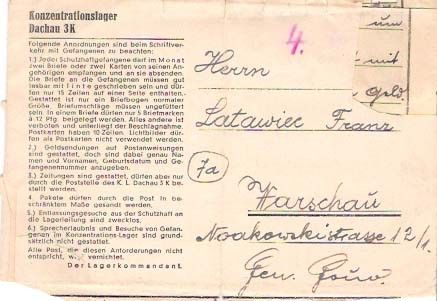 Konzentrationslager
Dachau 3K
Folgende Anordnungen sind beim Schriftver-
kehr mit Gefangenen zu beachten:
1.) Jeder Schutzhaftgefangene darf im Monat
zwei Briefe oder zwei Karten von seinen An-
gehörigen empfangen und an sie absenden.
Die Briefe an die Gefangenen müssen gut
lesbar mit Tinte geschrieben sein und dür-
fen nur 15 Zeilen auf einer Seite enthalten.
Gestattet ist nur ein Briefbogen normaler
Größe. Briefumschläge müssen ungefüttert
sein. In einem Briefe dürfen nur 5 Briefmarken
à 12 Pfg beigelegt werden. Alles andere ist
verboten und unterliegt der Beschlagnahme.
Postkarten haben 10 Zeilen. Lichtbilder dür-
fen als Postkarten nicht verwendet werden.
2.) Geldsendungen auf Postanweisungen
sind gestattet, doch sind dabei genau Na-
men und Vornamen, Geburtsdatum und Ge-
fangenennummer anzugeben.
3.) Zeitungen sind gestattet, dürfen aber nur
durch die Poststelle des K. L. Dachau 3 K be-
stellt werden.
4. Pakete dürfen durch die Post in be-
schränktem Maße gesandt werden.
5.) Entlassungsgesuche aus der Schutzhaft an
die Lagerleitung sind zwecklos.
6.) Sprecherlaubnis und Besuche von Gefan-
genen im Konzentrations-Lager sind grund-
sätzlich nicht gestattet.
Alle Post, die diesen Anforderungen nicht
entspricht, vernichtet.
Der Lagerkommandant.
4.
um
mit
Geld.
Herrn
Latawiec Franz
7a
Warschau
Noakowskistrasse 12/1.
Gen. Gouv.